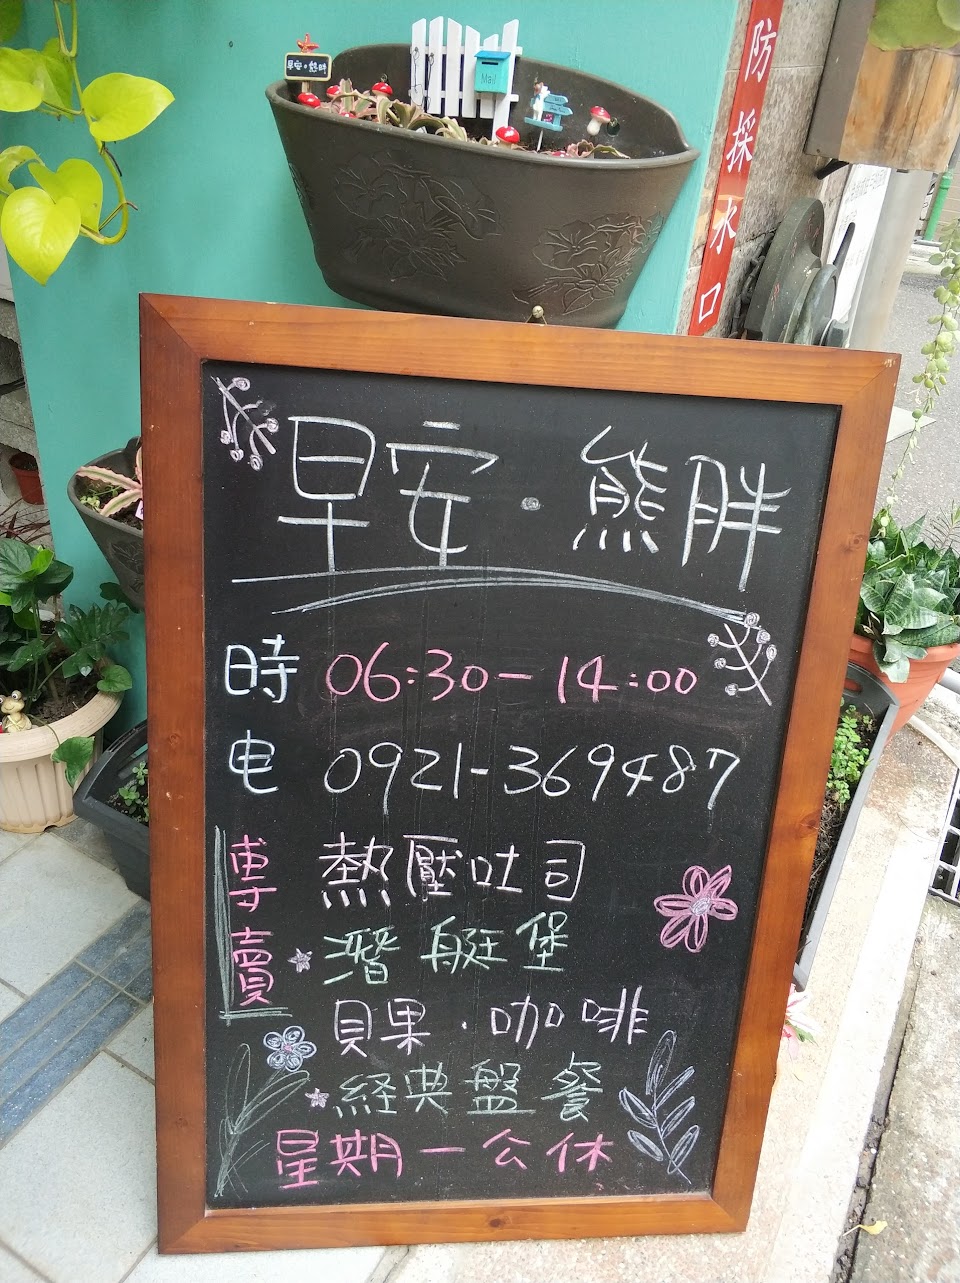 早安·熊胖
Mail
防採水口
早安·熊胖
時 06:30-14:00
电 0921-369487
專賣
熱壓吐司
潛艇堡
貝果·咖啡
經典盤餐
星期一公休